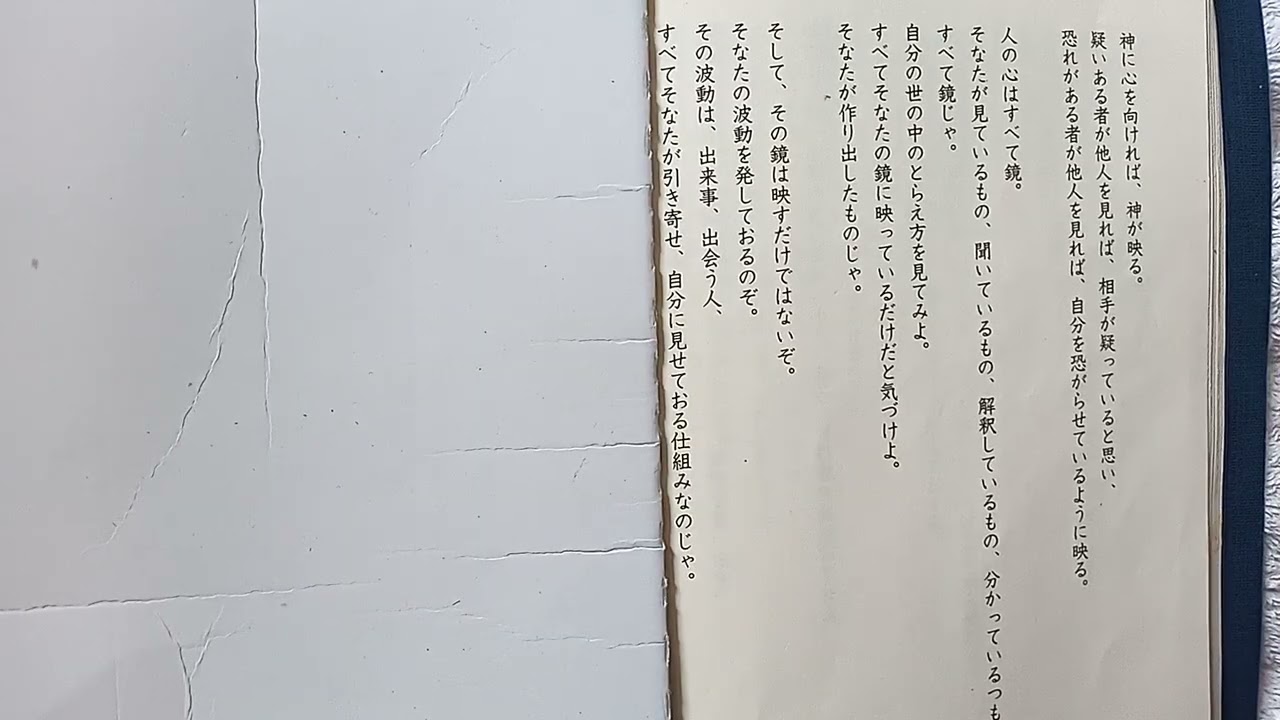 神に心を向ければ、神が映る。
疑いある者が他人を見れば、相手が疑っていると思い、
恐れがある者が他人を見れば、自分を恐がらせているように映る。
人の心はすべて鏡。
そなたが見ているもの、聞いているもの、解釈しているもの、分かっているつも
すべて鏡じゃ。
自分の世の中のとらえ方を見てみよ。
すべてそなたの鏡に映っているだけだと気づけよ。
そなたが作り出したものじゃ。
そして、その鏡は映すだけではないぞ。
そなたの波動を発しておるのぞ。
その波動は、出来事、出会う人、
すべてそなたが引き寄せ、自分に見せておる仕組みなのじゃ。